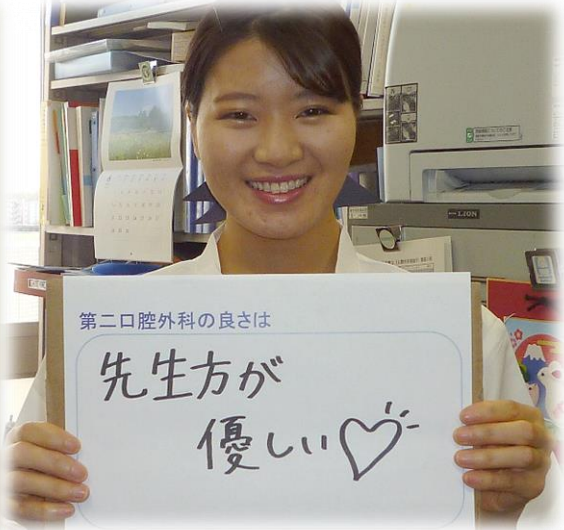 第二口腔外科の良さは
先生方が
優しい♡
LION